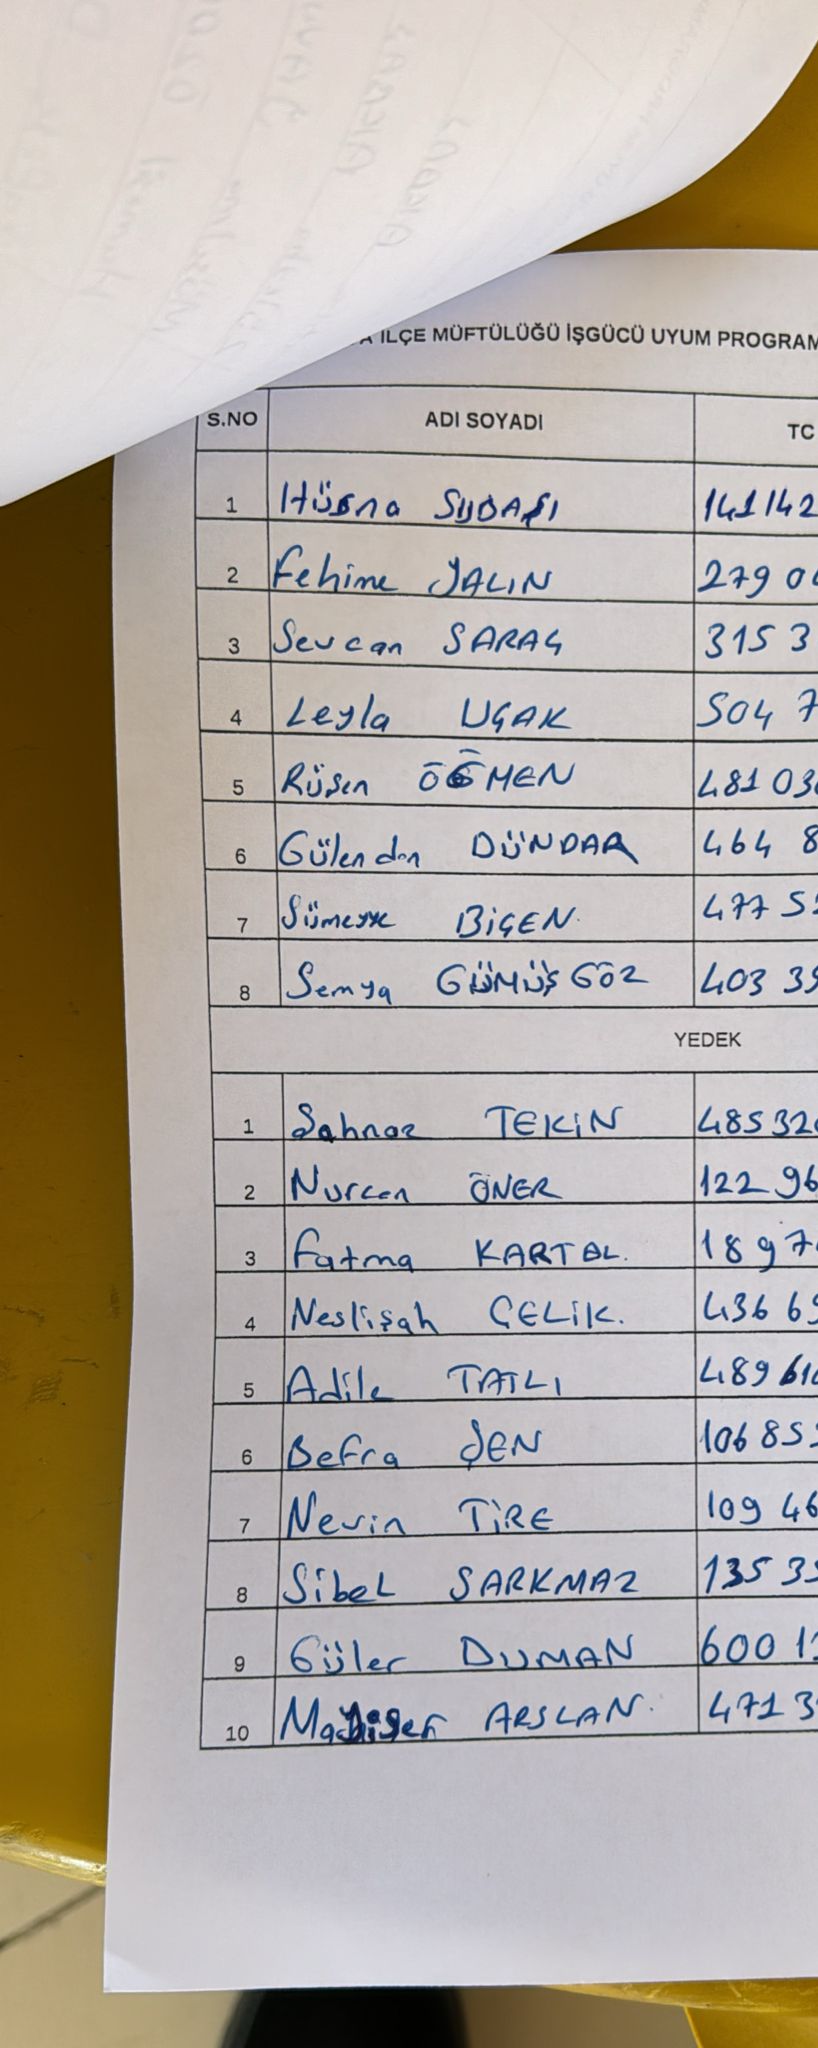 İLÇE MÜFTÜLÜĞÜ İŞGÜCÜ UYUM PROGRAM
S.NO ADI SOYADI TC
1 Hüsna 141142
2 Fehime YALIN 279 0
3 Sevcan SARAÇ 315 3
4 Leyla UÇAK 504 7
5 Rüşen ÖĞMEN 481 03
6 Gülendan DÜNDAR 464 8
7 Sümeyye BİÇEN 477 5
8 Semya GÜMÜŞGÖZ 403 39
YEDEK
1 Şahnaz TEKİN 48532
2 Nurcan ÖNER 122 96
3 Fatma KARTAL. 1897
4 Neslişah ÇELİK. 436 69
5 Adile TATLI 489 61
6 Befra ŞEN 106 85
7 Nevin TİRE 109 46
8 Sibel SARKMAZ 135 35
9 Güler DUMAN 600 1
10 ARSLAN. 471 3